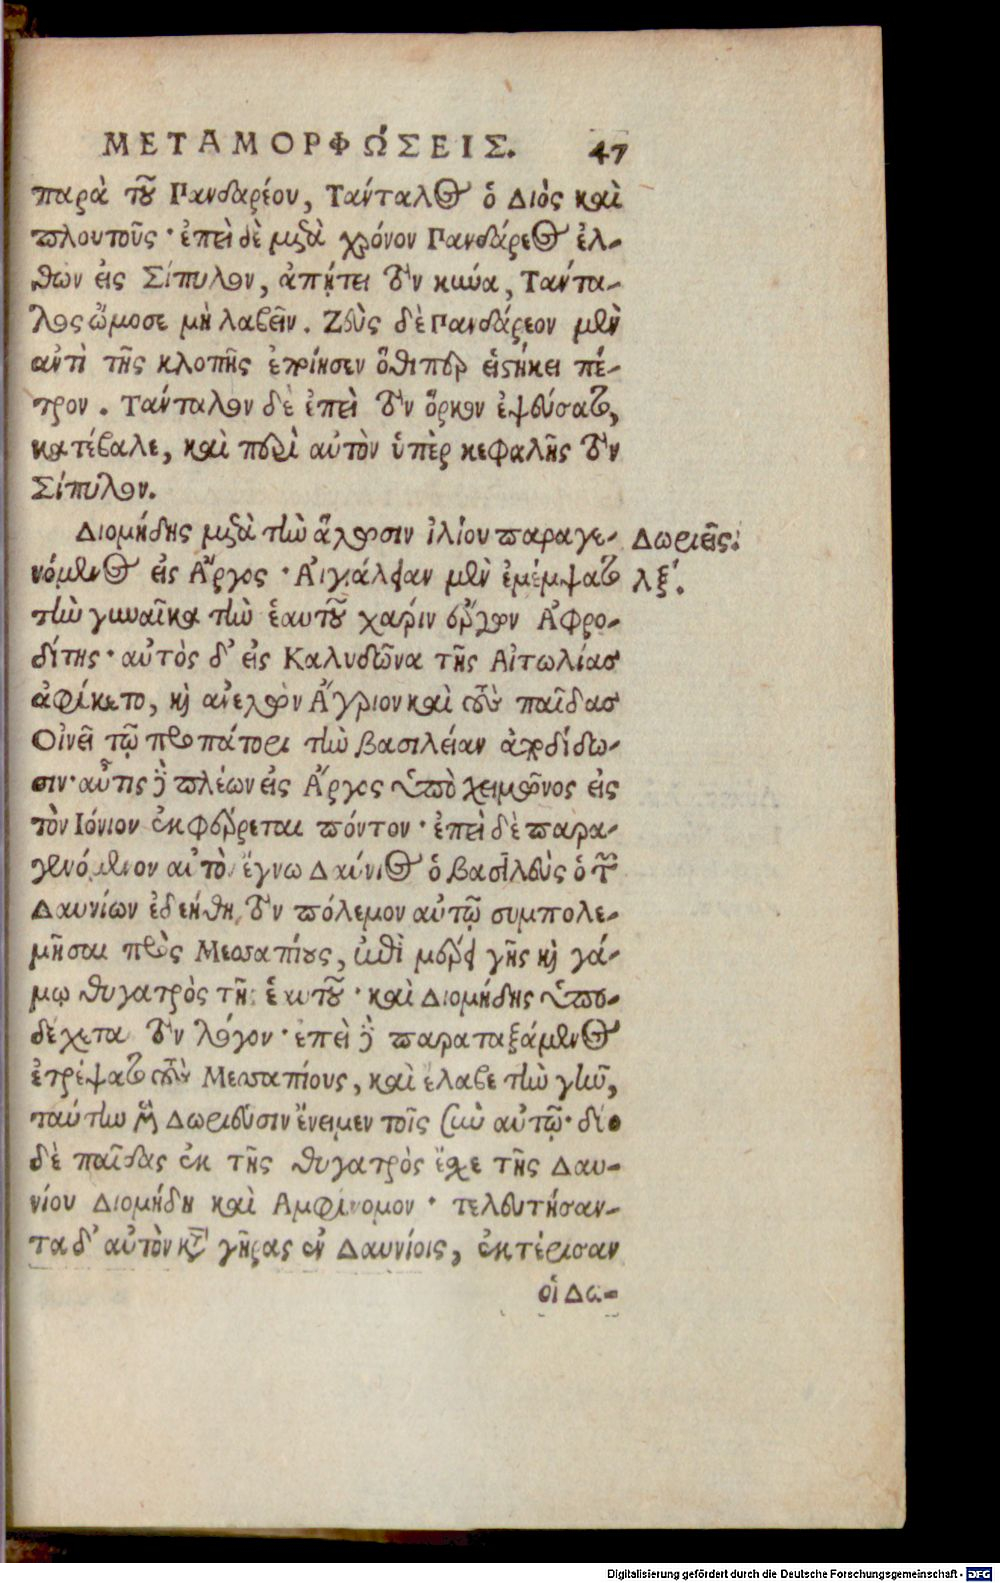 ΜΕΤΑΜΟΡΦΩ´ΣΕΙΣ. 47
παρὰ τοῦ Πανδαρέου, Τάνταλος ὁ Διὸς καὶ
πλουτοῦς· ἐπεὶ δὲ μετὰ χρόνον Πανδάρεος ἐλ-
θὼν εἰς Σίπυλον, ἀπῄτει τὸν κύνα, Τάντα-
λος ὤμοσε μὴ λαβεῖν. Ζεὺς δὲ Πανδάρεον μὲν
ἀντὶ τῆς κλοπῆς ἐποίησεν ὅθιπερ εἱστήκει πέ-
τρον. Τάνταλον δὲ ἐπεὶ τὸν ὅρκον ἐψεύσατο,
κατέβαλε, καὶ περὶ αὐτὸν ὑπὲρ κεφαλῆς τὸν
Σίπυλον.
Διομήδης μετὰ τὴν ἅλωσιν ἰλίου παραγε-
νόμενος εἰς Ἄργος· Αἰγιάλειαν μὲν ἐμέμψατο
τὴν γυναῖκα τὴν ἑαυτοῦ χάριν ἔργων Ἀφρο-
δίτης· αὐτὸς δ' εἰς Καλυδῶνα τῆς Αἰτωλίας
ἀφίκετο, καὶ ἀνελὼν Ἄγριον καὶ τοὺς παῖδας
Οἰνεῖ τῷ προπάτορι τὴν βασιλείαν ἀποδίδω-
σιν· αὖτις δὲ πλέων εἰς Ἄργος ὑπὸ χειμῶνος εἰς
τὸν Ιόνιον ἐκφέρεται πόντον· ἐπεὶ δὲ παρα-
γενόμενον αὐτὸν ἔγνω Δαύνιος ὁ βασιλεὺς ὁ τῶν
Δαυνίων ἐδεήθη τὸν πόλεμον αὐτῷ συμπολε-
μῆσαι πρὸς Μεσσαπίους, ἐπὶ μέρει γῆς καὶ γά-
μῳ θυγατρὸς τῆς ἑαυτοῦ· καὶ Διομήδης ὑπο-
δέχεται τὸν λόγον· ἐπεὶ δὲ παραταξάμενος
ἐτρέψατο τοὺς Μεσσαπίους, καὶ ἔλαβε τὴν γῆν,
ταύτην μὲν Δωριεῦσιν ἔνειμεν τοῖς σὺν αὐτῷ· δύο
δὲ παῖδας ἐκ τῆς θυγατρὸς ἔσχε τῆς Δαυ-
νίου Διομήδη καὶ Αμφίνομον· τελευτήσαν-
τα δ' αὐτὸν κατὰ γῆρας ἐν Δαυνίοις, ἐκτέρισαν
οἱ Δω-
Δωριεῖς.
λξ´.
Digitalisierung gefördert durch die Deutsche Forschungsgemeinschaft - DFG